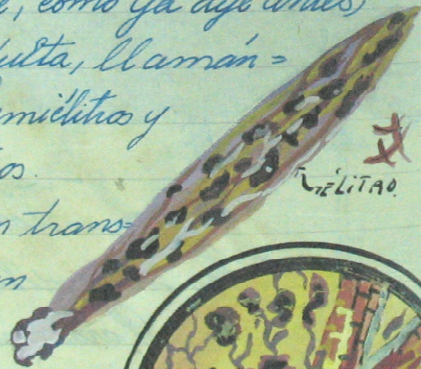 , como ya dije antes,
ulta, llamán=
emiélitros y
os.
n trans=
en
TÉLITRO.